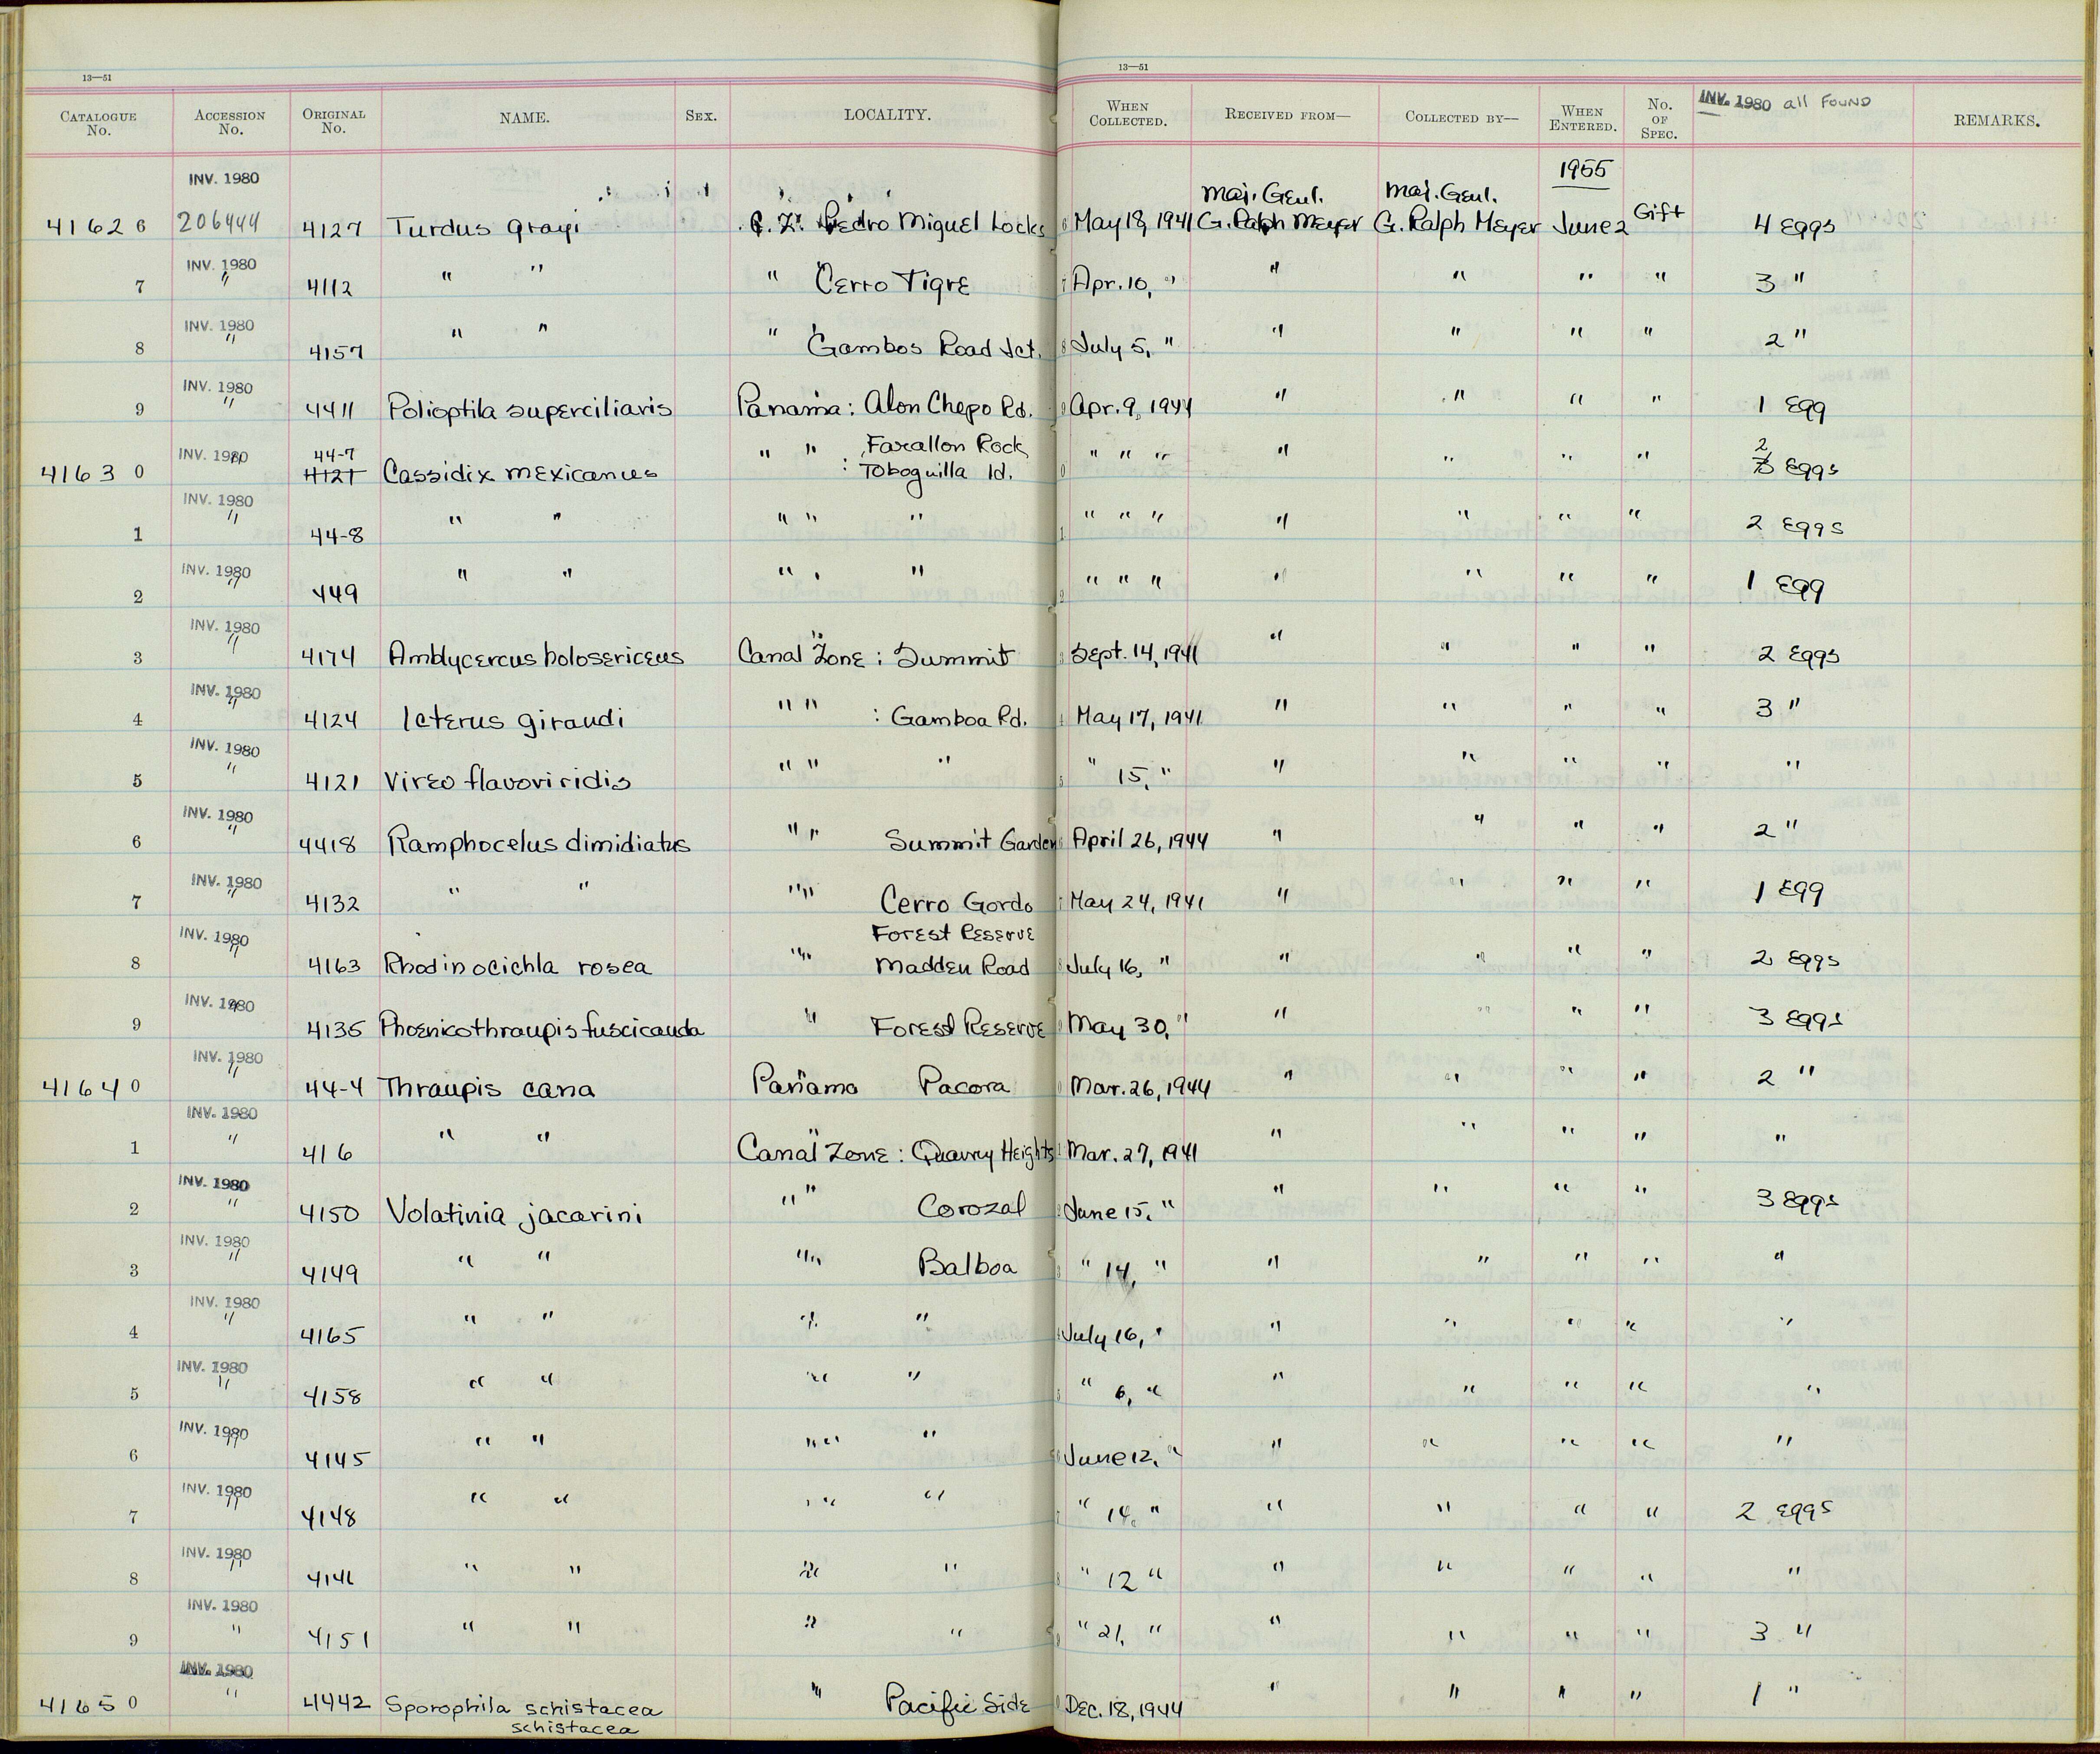 13—51
13—51
CATALOGUE No. ACCESSION No. ORIGINAL No. NAME. SEX. LOCALITY. WHEN COLLECTED. RECEIVED FROM— COLLECTED BY— WHEN ENTERED. No. OF SPEC. INV. 1980 all FOUND REMARKS.
INV. 1980 1955
Maj. Genl. Maj. Genl.
41626 206444 4127 Turdus grayi C. Z. Pedro Miguel Locks May 18, 1941 G. Ralph Meyer G. Ralph Meyer June 2 Gift 4 Eggs
INV. 1980
7 " 4112 " " " Cerro Tigre Apr. 10, " " " " " 3 "
INV. 1980
8 " 4157 " " " Gambos Road Jct. July 5, " " " " " 2 "
INV. 1980
9 " 4411 Polioptila superciliaris Panama: Alon Chepo Rd. Apr. 9, 1944 " " " " 1 Egg
INV. 1980 44-7 " " Farallon Rock " " " " " " " 2
41630 4127 Cassidix mexicanus : Toboguilla Id. Eggs
INV. 1980
1 " 44-8 " " " " " " " " " " " " 2 Eggs
INV. 1980
2 " 449 " " " " " " " " " " " 1 Egg
INV. 1980
3 " 4174 Amblycercus holosericeus Canal Zone: Summit Sept. 14, 1941 " " " " 2 Eggs
INV. 1980
4 " 4124 Icterus giraudi " " : Gamboa Rd. May 17, 1941 " " " " 3 "
INV. 1980
5 " 4121 Vireo flavoviridis " " " " 15, " " " " " "
INV. 1980
6 " 4418 Ramphocelus dimidiatus " " Summit Garden April 26, 1944 " " " " 2 "
INV. 1980
7 " 4132 " " " " Cerro Gordo May 24, 1941 " " " " 1 Egg
INV. 1980 Forest Reserve
8 " 4163 Rhodinocichla rosea " " Madden Road July 16, " " " " " 2 Eggs
INV. 1980
9 " 4135 Phoenicothraupis fuscicauda " Forest Reserve May 30, " " " " " 3 Eggs
INV. 1980
41640 " 44-4 Thraupis cana Panama Pacora Mar. 26, 1944 " " " " 2 "
INV. 1980
1 " 416 " " Canal Zone: Quarry Heights Mar. 27, 1941 " " " " "
INV. 1980
2 " 4150 Volatinia jacarini " " Corozal June 15, " " " " " 3 Eggs
INV. 1980
3 " 4149 " " " " Balboa " 14, " " " " " "
INV. 1980
4 " 4165 " " " " July 16, " " " " " "
INV. 1980
5 " 4158 " " " " " 6, " " " " " "
INV. 1980
6 " 4145 " " " " " June 12, " " " " " "
INV. 1980
7 " 4148 " " " " " 14, " " " " " 2 Eggs
INV. 1980
8 " 4141 " " " " " 12 " " " " " "
INV. 1980
9 " 4151 " " " " " 21, " " " " " 3 "
INV. 1980
41650 " 4442 Sporophila schistacea " Pacific Side Dec. 18, 1944 " " " " 1 "
schistacea